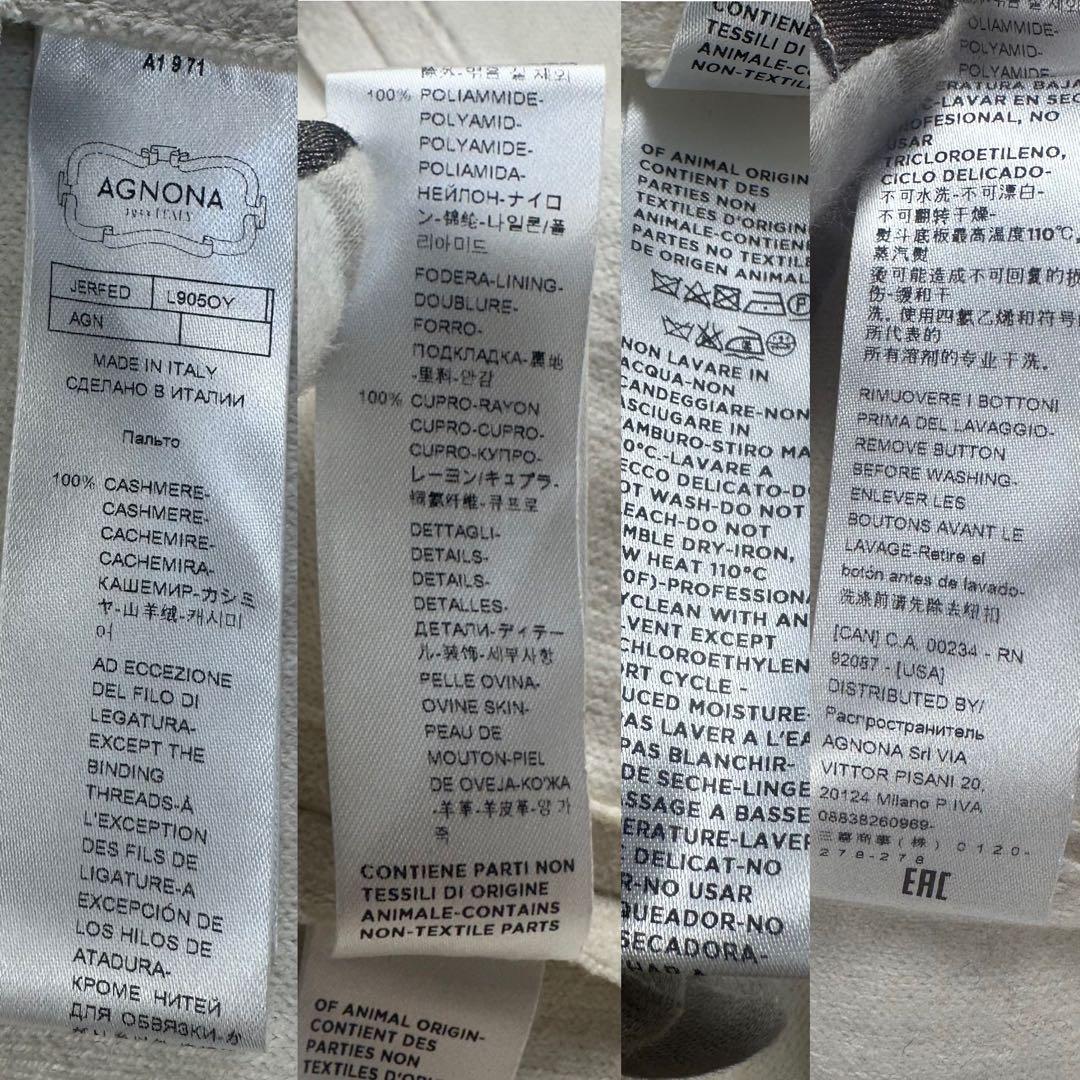 A1971
AGNONA
JERFED L905OY
AGN
MADE IN ITALY
СДЕЛАНО В ИТАЛИИ
Пальто
100% CASHMERE-
CASHMERE-
CACHEMIRE-
CACHEMIRA-
КАШЕМИР-カシミ
ヤ-山羊绒-캐시미
어
AD ECCEZIONE
DEL FILO DI
LEGATURA-
EXCEPT THE
BINDING
THREADS-À
L'EXCEPTION
DES FILS DE
LIGATURE-A
EXCEPCIÓN DE
LOS HILOS DE
ATADURA-
КРОМЕ НИТЕЙ
ДЛЯ ОБВЯЗКИ-か
100% POLIAMMIDE-
POLYAMID-
POLYAMIDE-
POLIAMIDA-
НЕЙЛОН-ナイロ
ン-锦纶-나일론/폴
리아미드
FODERA-LINING-
DOUBLURE-
FORRO-
ПОДКЛАДКА-裏地
-里料-안감
100% CUPRO-RAYON
CUPRO-CUPRO-
CUPRO-КУПРО-
レーヨン/キュプラ-
铜氨纤维-큐프로
DETTAGLI-
DETAILS-
DETAILS-
DETALLES-
ДЕТАЛИ-ディテー
ル-装饰-세부사항
PELLE OVINA-
OVINE SKIN-
PEAU DE
MOUTON-PIEL
DE OVEJA-КОЖА
-羊革-羊皮革-양가
죽
CONTIENE PARTI NON
TESSILI DI ORIGINE
ANIMALE-CONTAINS
NON-TEXTILE PARTS
OF ANIMAL ORIGIN-
CONTIENT DES
PARTIES NON
TEXTILES D'OR
CONTIENE
TESSILI DI
ANIMALE-C
NON-TEXTIL
OF ANIMAL ORIGIN
CONTIENT DES
PARTIES NON
TEXTILES D'ORIGIN
ANIMALE-CONTIEN
PARTES NO TEXTILE
DE ORIGEN ANIMAL
NON LAVARE IN
ACQUA-NON
CANDEGGIARE-NON
ASCIUGARE IN
AMBURO-STIRO MA
0°C.-LAVARE A
ECCO DELICATO-D
OT WASH-DO NOT
EACH-DO NOT
MBLE DRY-IRON,
W HEAT 110°C
0F)-PROFESSIONA
YCLEAN WITH AN
VENT EXCEPT
CHLOROETHYLEN
ORT CYCLE -
UCED MOISTURE-
PAS LAVER A L'EA
PAS BLANCHIR-
DE SECHE-LINGE
SSAGE A BASSE
ERATURE-LAVER
DELICAT-NO
R-NO USAR
QUEADOR-NO
SECADORA-
OLIAMMIDE-
POLYAMID-
POLYAMIDE
ERATURA BAJA
-LAVAR EN SEC
OFESIONAL, NO
USAR
TRICLOROETILENO,
CICLO DELICADO-
不可水洗-不可漂白-
不可翻转干燥-
熨斗底板最高温度110℃,
蒸汽熨
烫可能造成不可回复的损
伤-缓和干
洗. 使用四氯乙烯和符号
所代表的
所有溶剂的专业干洗.
RIMUOVERE I BOTTONI
PRIMA DEL LAVAGGIO-
REMOVE BUTTON
BEFORE WASHING-
ENLEVER LES
BOUTONS AVANT LE
LAVAGE-Retire el
botón antes de lavado-
洗涤前请先除去纽扣
[CAN] C.A. 00234 - RN
92087 - [USA]
DISTRIBUTED BY/
Распространитель
AGNONA Srl VIA
VITTOR PISANI 20,
20124 Milano P.IVA
08838260969-
三喜商事(株) 0120-
278-278
EAC